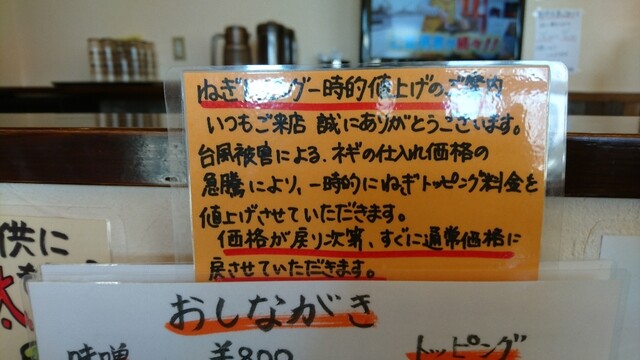 ねぎトッピング一時的値上げのご案内
いつもご来店 誠にありがとうございます。
台風被害による、ネギの仕入れ価格の
急騰により、一時的にねぎトッピング料金を
値上げさせていただきます。
価格が戻り次第、すぐに通常価格に
戻させていただきます。
供に
おしながき
味噌 ¥800 トッピング